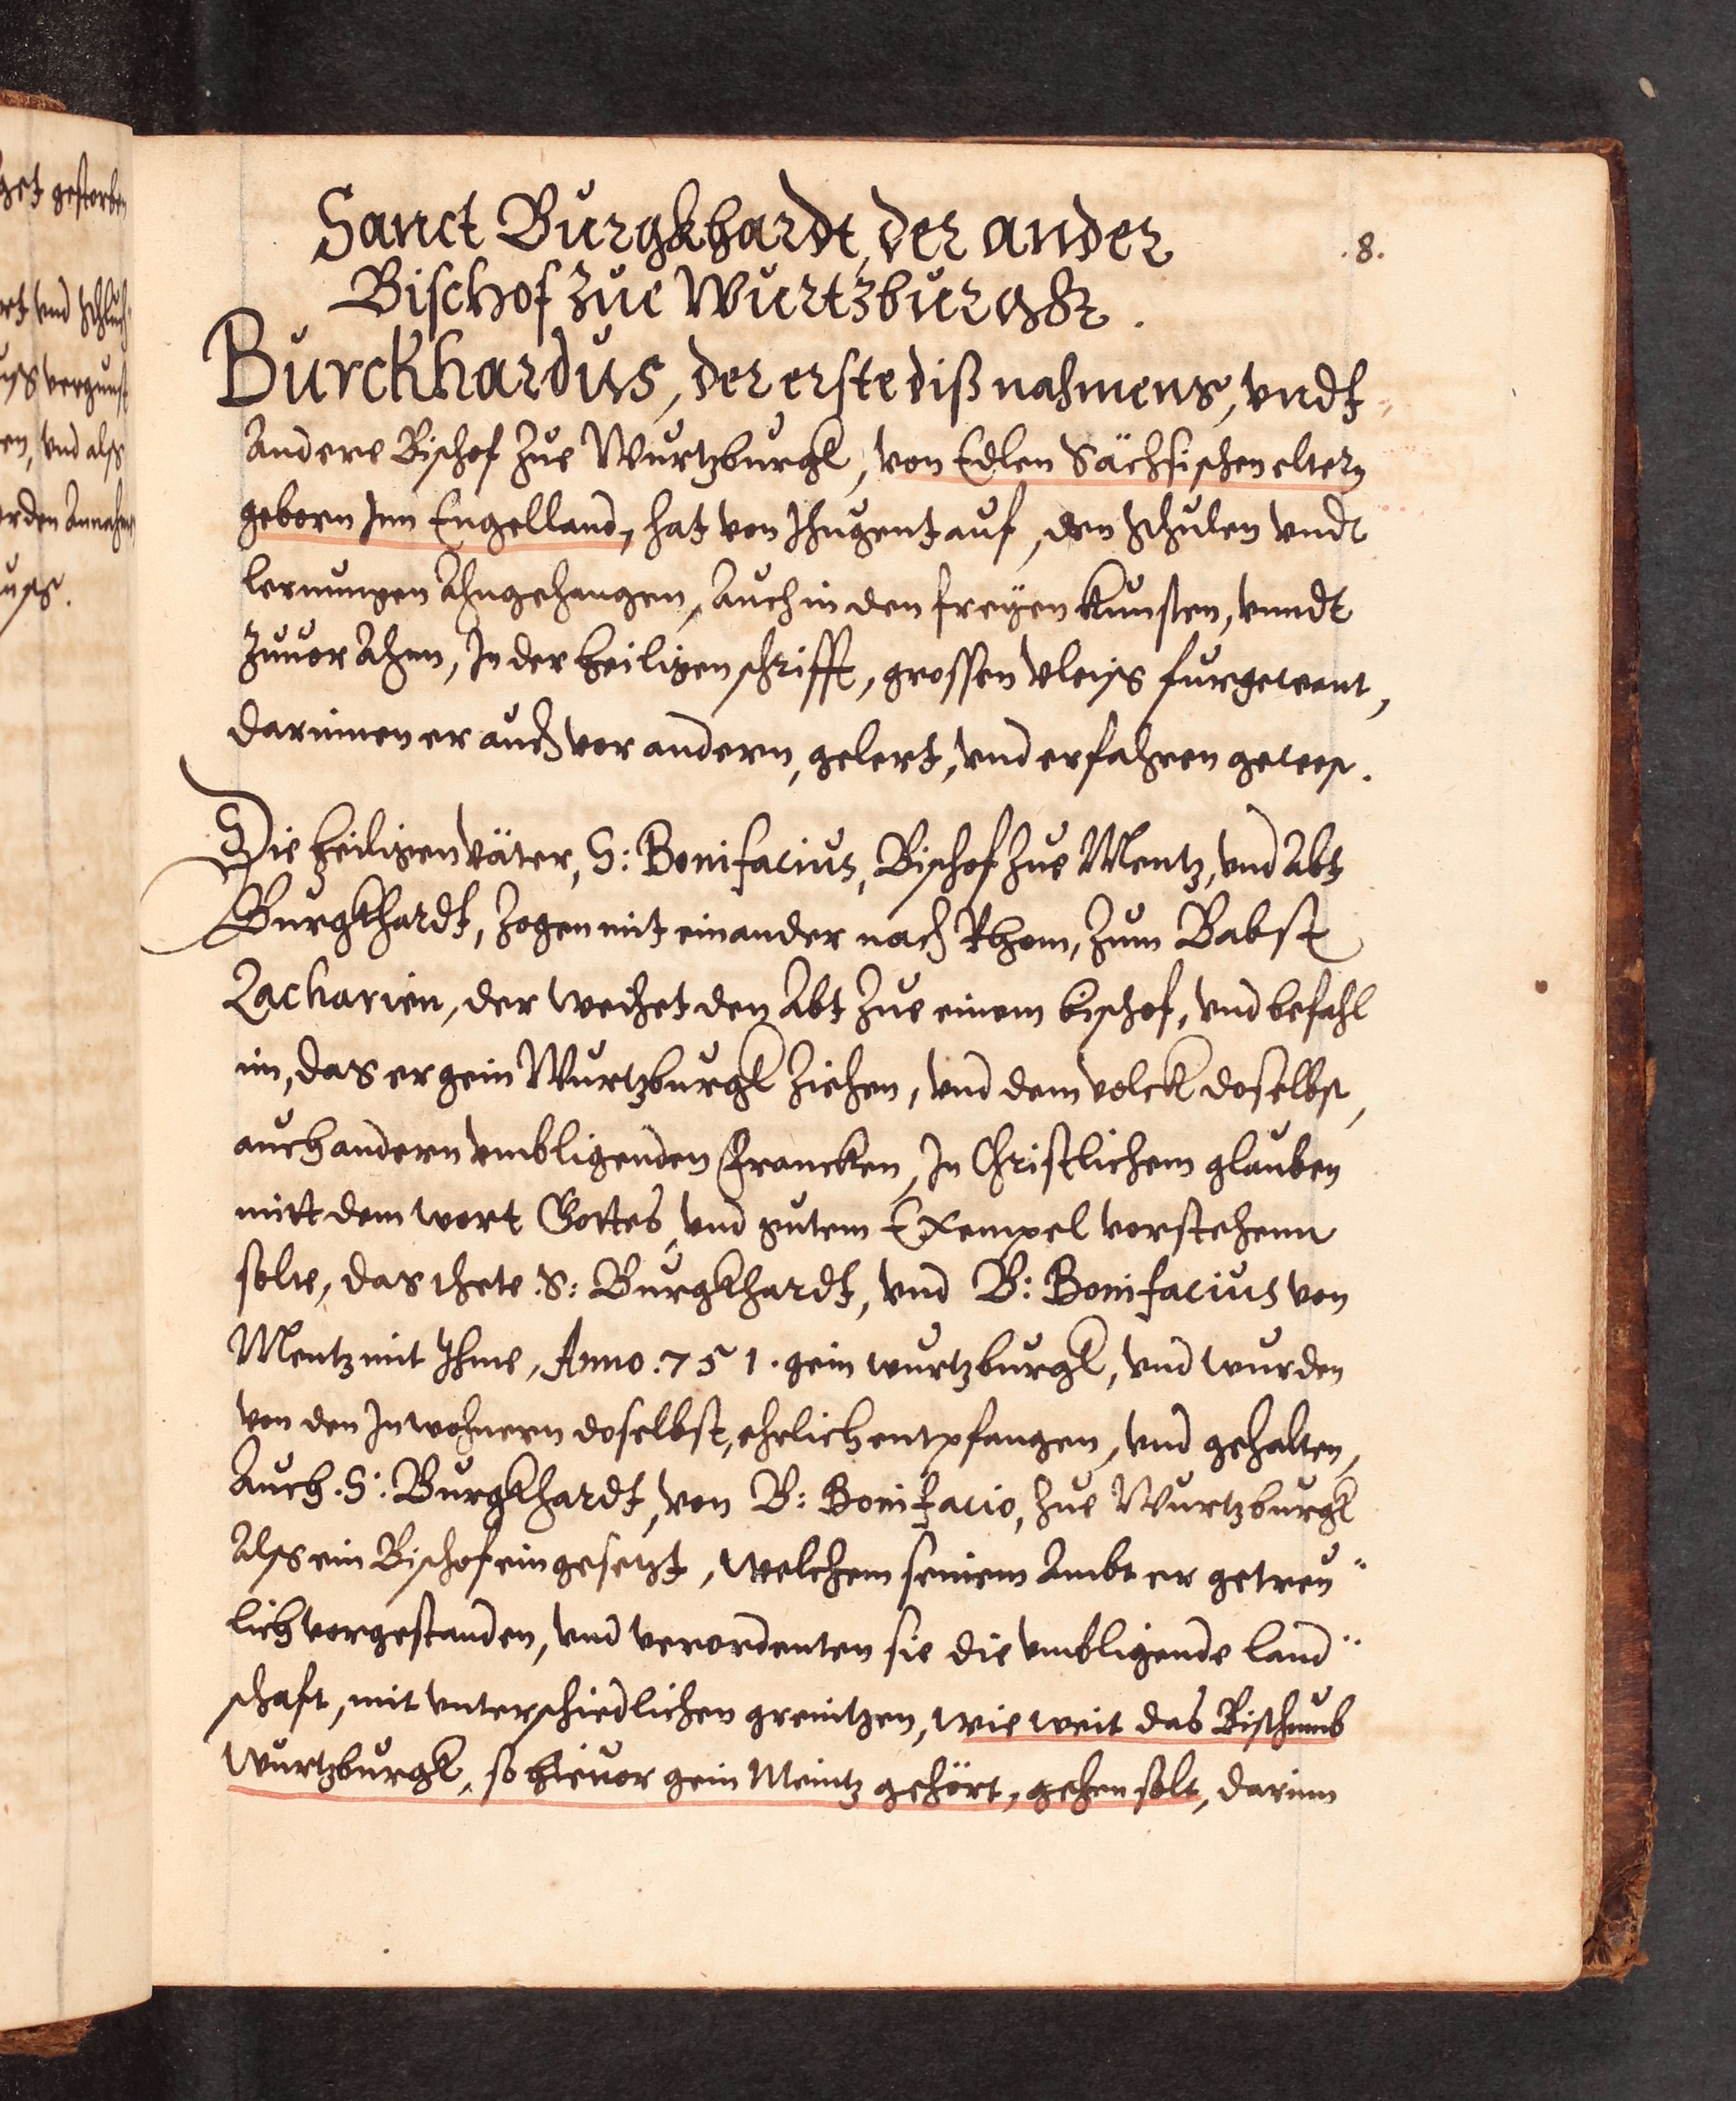 get gestorben
ort vnd schluch
vergunst
en, vnd alss
orden Annahm
Sanct Burgkhardt, der ander
.8.
Bischof zue Wurtzburgkh.
Burckhardus, der erste diß nahmens, vndt
Andere Bischof zue Wurtzburgk, von Edlen Sächsischen eltern
geborn Inn Engelland, hat von Jhugent auf, den schulen vndt
lernungen Ahngehangen, Auch in den freyen kunsten, vnndt
zuuor Ahnn, In der heiligen schrifft, grossen vleiss furgewant,
darinnen er auch vor andern, gelert, vnd erfahren gewest.
Die heiligen väter, S: Bonifacius, Bischof zue Mentz, vnd Abt
Burgkhardt, zogen mit einander nach Rhom, zum Babst
Zacharien, der weihet den Abt zue einem bischof, vnd befahl
im, das er gein Wurtzburgk ziehen, vnd dem volck doselbst,
auch andern vmbligenden Francken, In Christlichem glauben
mitt dem wort Gottes, vnd gutem Exempel vorstehenn
solte, das thete .S: Burgkhardt, vnd B: Bonifacius von
Mentz mit Ihme, Anno .751. gein wurtzburgk, vnd wurden
von den Inwohnern doselbst, ehrlich entpfangen, vnd gehalten,
Auch .S: Burgkhardt, von B: Bonifacio, zue Wurtzburgk
Alss ein Bischof eingesetzt, welchem seinem Ambt er getreu"
lich vorgestanden, vnd verordenten sie die vmbligende land"
schaft, mit vnterschiedlichen grenitzen, wie weit das Bisthumb
Wurtzburgk, so hieuor gein Meintz gehört, gehen solt, darinn